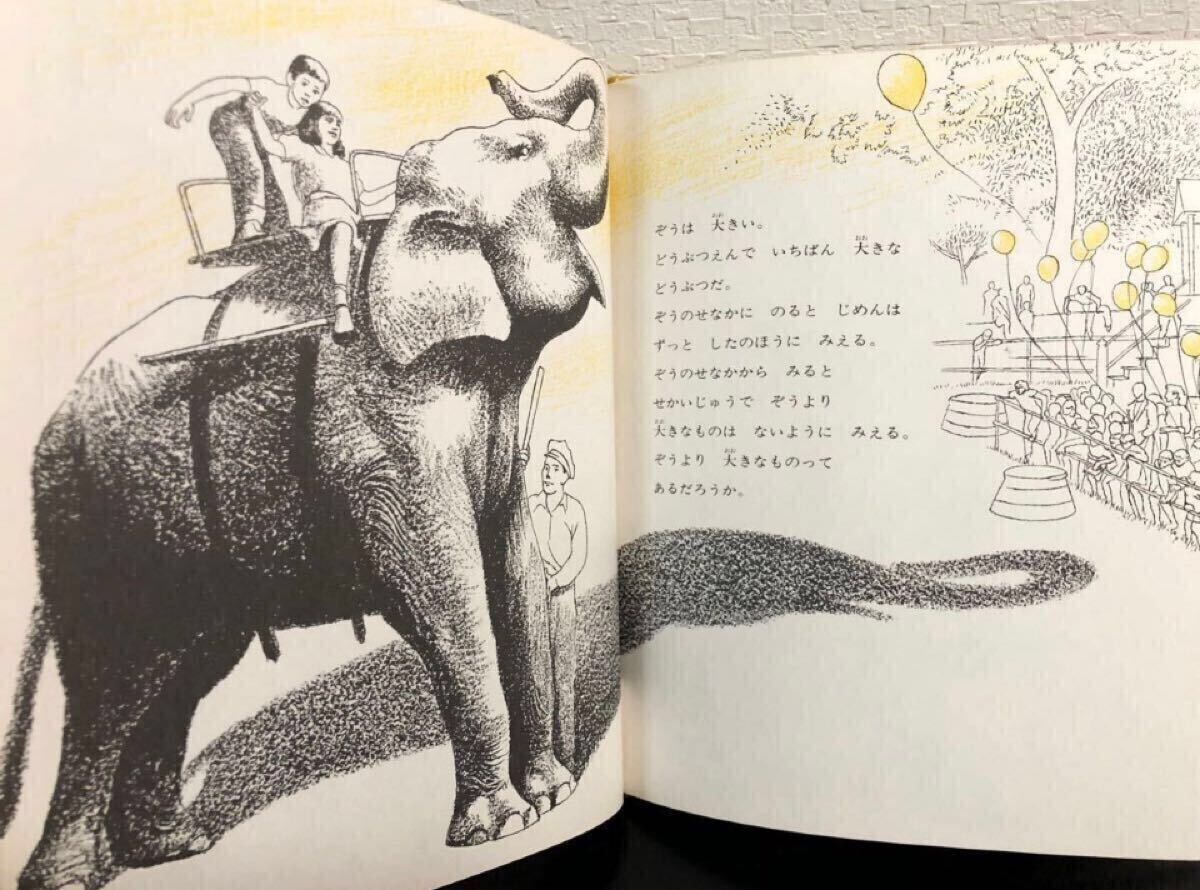 ぞうは　大きい。
どうぶつえんで　いちばん　大きな
どうぶつだ。
ぞうのせなかに　のると　じめんは
ずっと　したのほうに　みえる。
ぞうのせなかから　みると
せかいじゅうで　ぞうより
大きなものは　ないように　みえる。
ぞうより　大きなものって
あるだろうか。